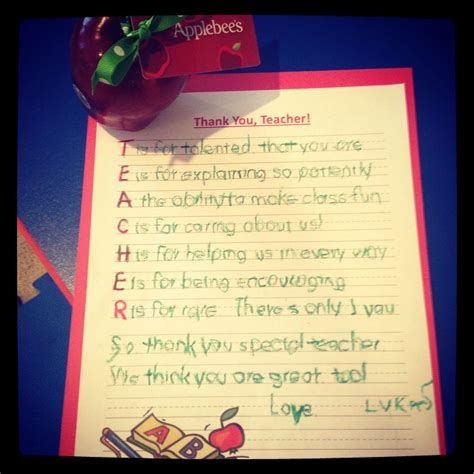 Applebee's
Thank You, Teacher!
T is for talented, that you are
E is for explaining so patiently
A the ability to make class fun
C is for caring about us!
H is for helping us in every way
E is for being encouraging
R is for rare There's only 1 you
So thank you special teacher
We think you are great too!
Love LVK
A B